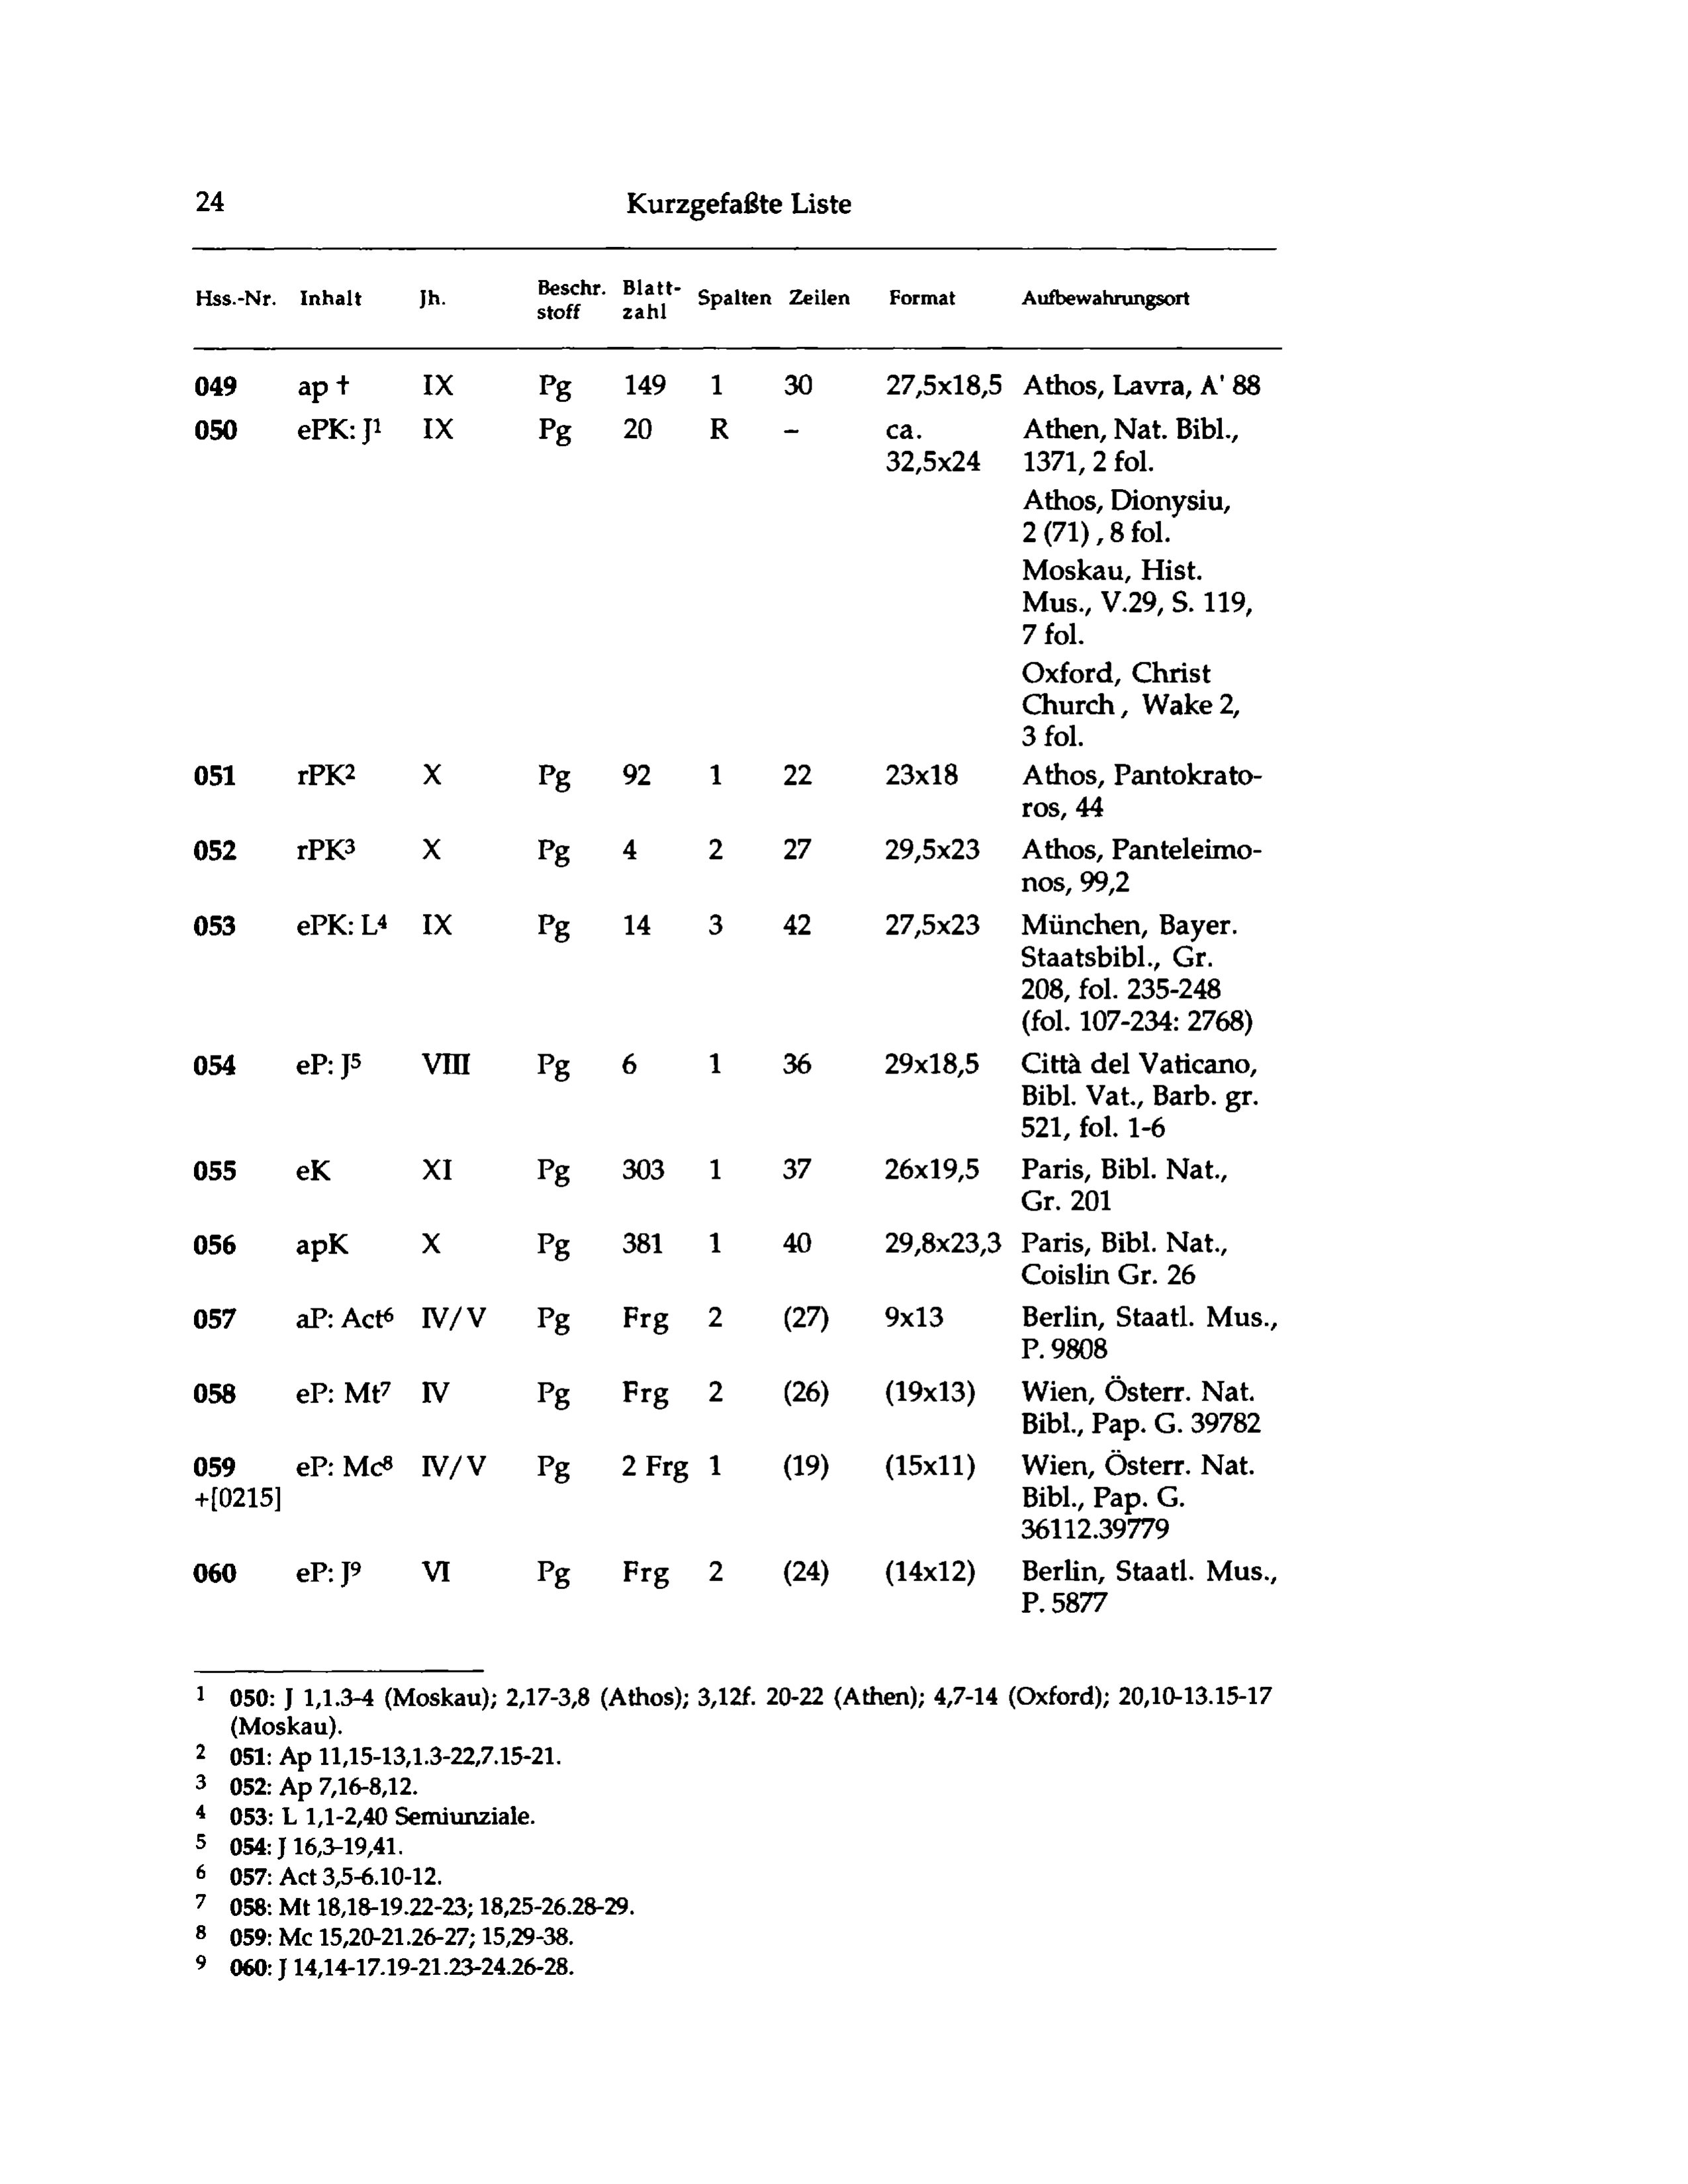 24 Kurzgefaßte Liste
Hss.-Nr. Inhalt Jh. Beschr. stoff Blatt- zahl Spalten Zeilen Format Aufbewahrungsort
049 ap † IX Pg 149 1 30 27,5x18,5 Athos, Lavra, A' 88
050 ePK: J¹ IX Pg 20 R – ca. Athen, Nat. Bibl.,
32,5x24 1371, 2 fol.
Athos, Dionysiu,
2 (71) , 8 fol.
Moskau, Hist.
Mus., V.29, S. 119,
7 fol.
Oxford, Christ
Church , Wake 2,
3 fol.
051 rPK² X Pg 92 1 22 23x18 Athos, Pantokrato-
ros, 44
052 rPK³ X Pg 4 2 27 29,5x23 Athos, Panteleimo-
nos, 99,2
053 ePK: L⁴ IX Pg 14 3 42 27,5x23 München, Bayer.
Staatsbibl., Gr.
208, fol. 235-248
(fol. 107-234: 2768)
054 eP: J⁵ VIII Pg 6 1 36 29x18,5 Città del Vaticano,
Bibl. Vat., Barb. gr.
521, fol. 1-6
055 eK XI Pg 303 1 37 26x19,5 Paris, Bibl. Nat.,
Gr. 201
056 apK X Pg 381 1 40 29,8x23,3 Paris, Bibl. Nat.,
Coislin Gr. 26
057 aP: Act⁶ IV/V Pg Frg 2 (27) 9x13 Berlin, Staatl. Mus.,
P. 9808
058 eP: Mt⁷ IV Pg Frg 2 (26) (19x13) Wien, Österr. Nat.
Bibl., Pap. G. 39782
059 eP: Mc⁸ IV/V Pg 2 Frg 1 (19) (15x11) Wien, Österr. Nat.
+[0215] Bibl., Pap. G.
36112.39779
060 eP: J⁹ VI Pg Frg 2 (24) (14x12) Berlin, Staatl. Mus.,
P. 5877
1 050: J 1,1.3-4 (Moskau); 2,17-3,8 (Athos); 3,12f. 20-22 (Athen); 4,7-14 (Oxford); 20,10-13.15-17
(Moskau).
2 051: Ap 11,15-13,1.3-22,7.15-21.
3 052: Ap 7,16-8,12.
4 053: L 1,1-2,40 Semiunziale.
5 054: J 16,3-19,41.
6 057: Act 3,5-6.10-12.
7 058: Mt 18,18-19.22-23; 18,25-26.28-29.
8 059: Mc 15,20-21.26-27; 15,29-38.
9 060: J 14,14-17.19-21.23-24.26-28.